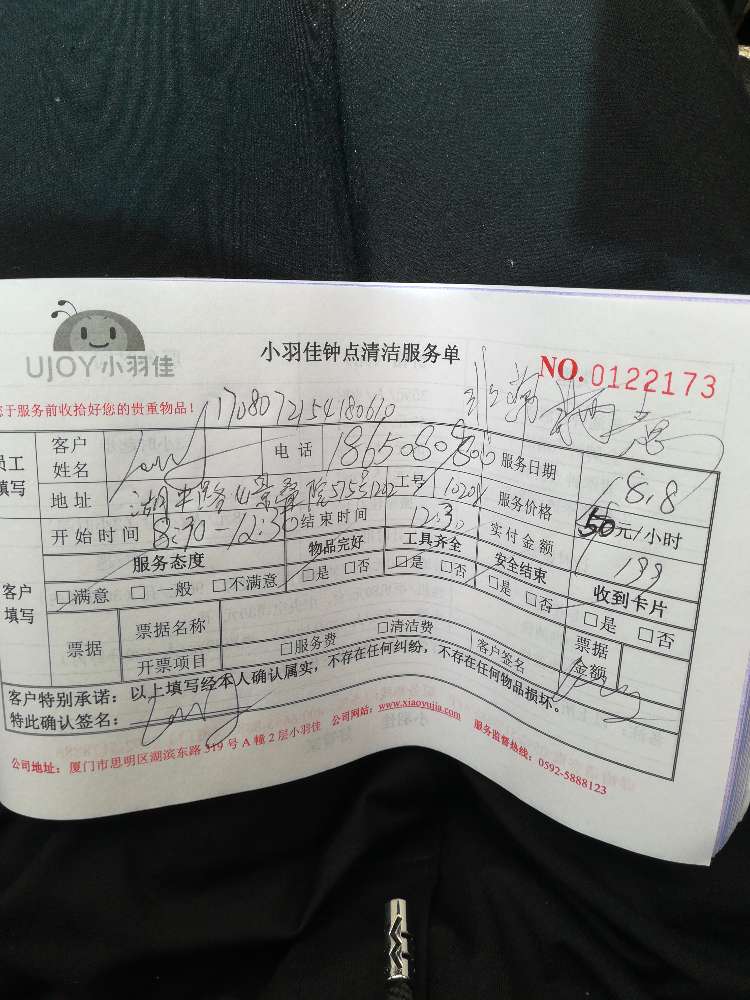 UJOY小羽佳
小羽佳钟点清洁服务单
NO.0122173
您于服务前收拾好您的贵重物品！
1708072154180610
员工填写
客户姓名
电话
服务日期 8.8
地址
工号
服务价格 50元/小时
开始时间 8:30-12:30 结束时间 12:30 实付金额 199
客户填写
服务态度 物品完好 工具齐全 安全结束 收到卡片
□满意 □一般 □不满意 □是 □否 □是 □否 □是 □否 □是 □否
票据 票据名称 票据金额
开票项目 □服务费 □清洁费 客户签名
客户特别承诺：以上填写经本人确认属实，不存在任何纠纷，不存在任何物品损坏。
特此确认签名：
公司地址：厦门市思明区湖滨东路319号A幢2层小羽佳 公司网站：www.xiaoyujia.com 服务监督热线：0592-5888123